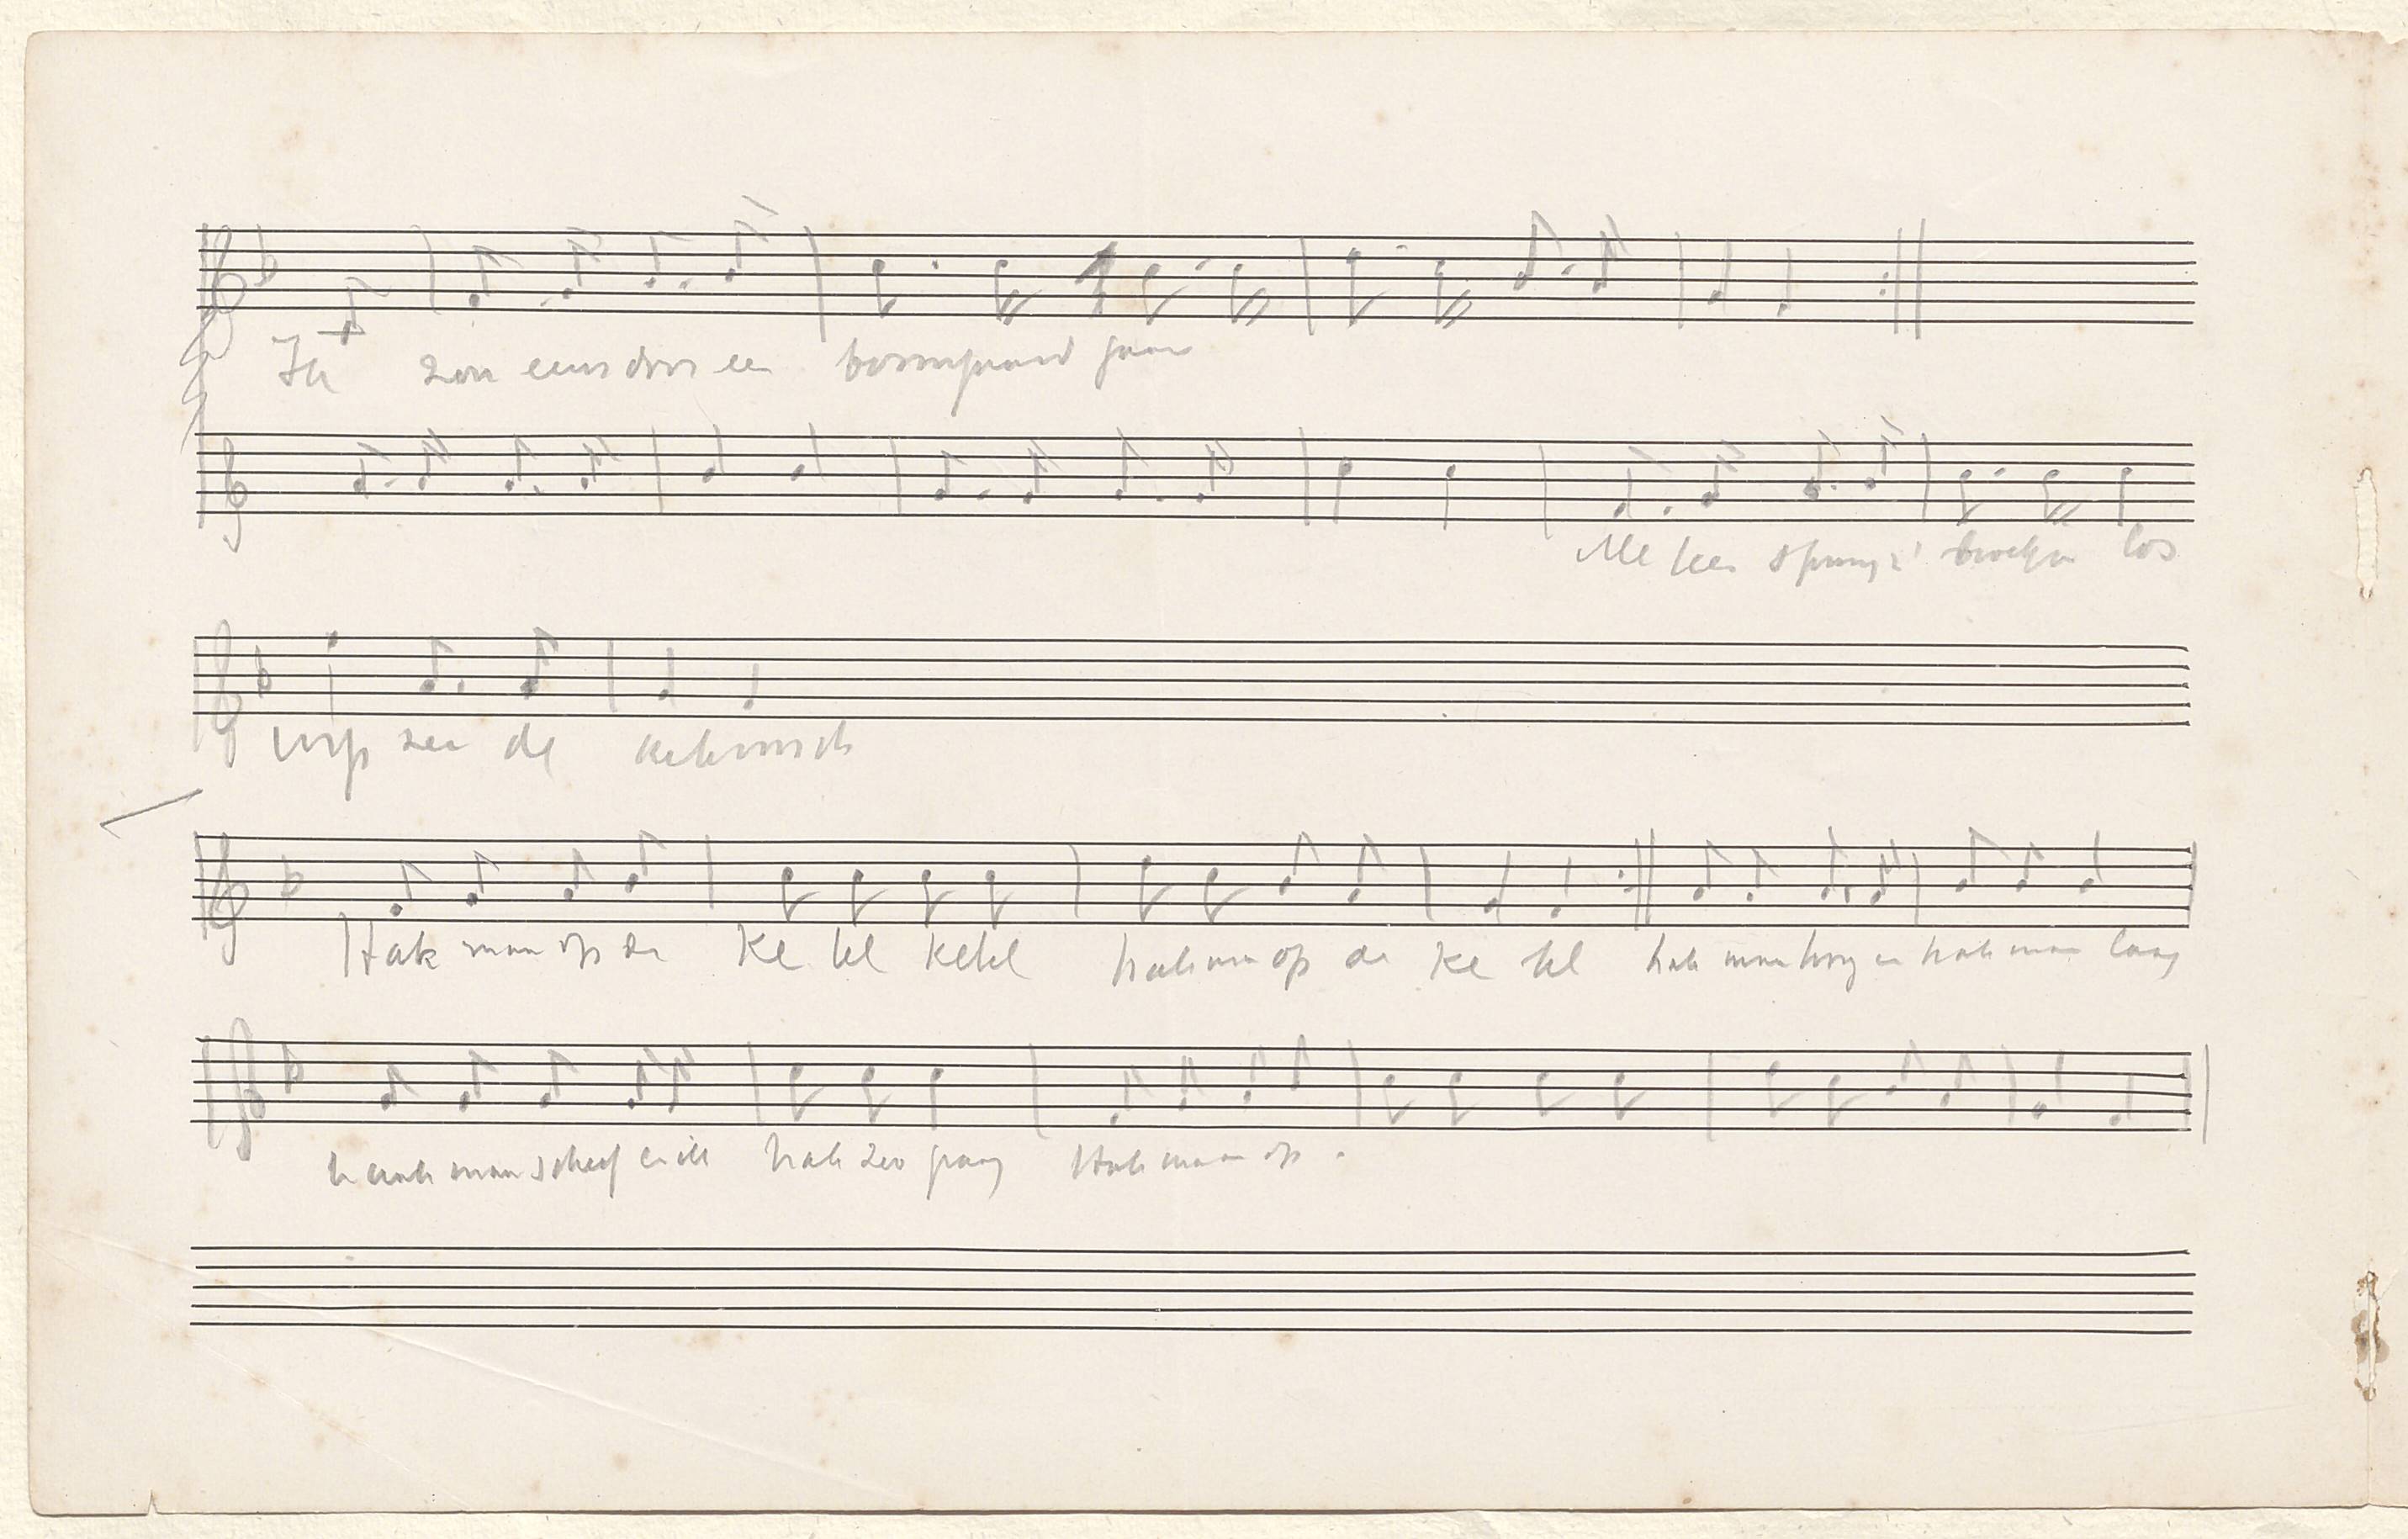 Ik zou eens door een boomgaard gaan
Alle kee sprong z' broekje los
wip zee de
Hak man op de ke tel ketel hak man op de ke tel hak man hoog en hak man laag
hak man scheef en hak zoo graag Hak man op .